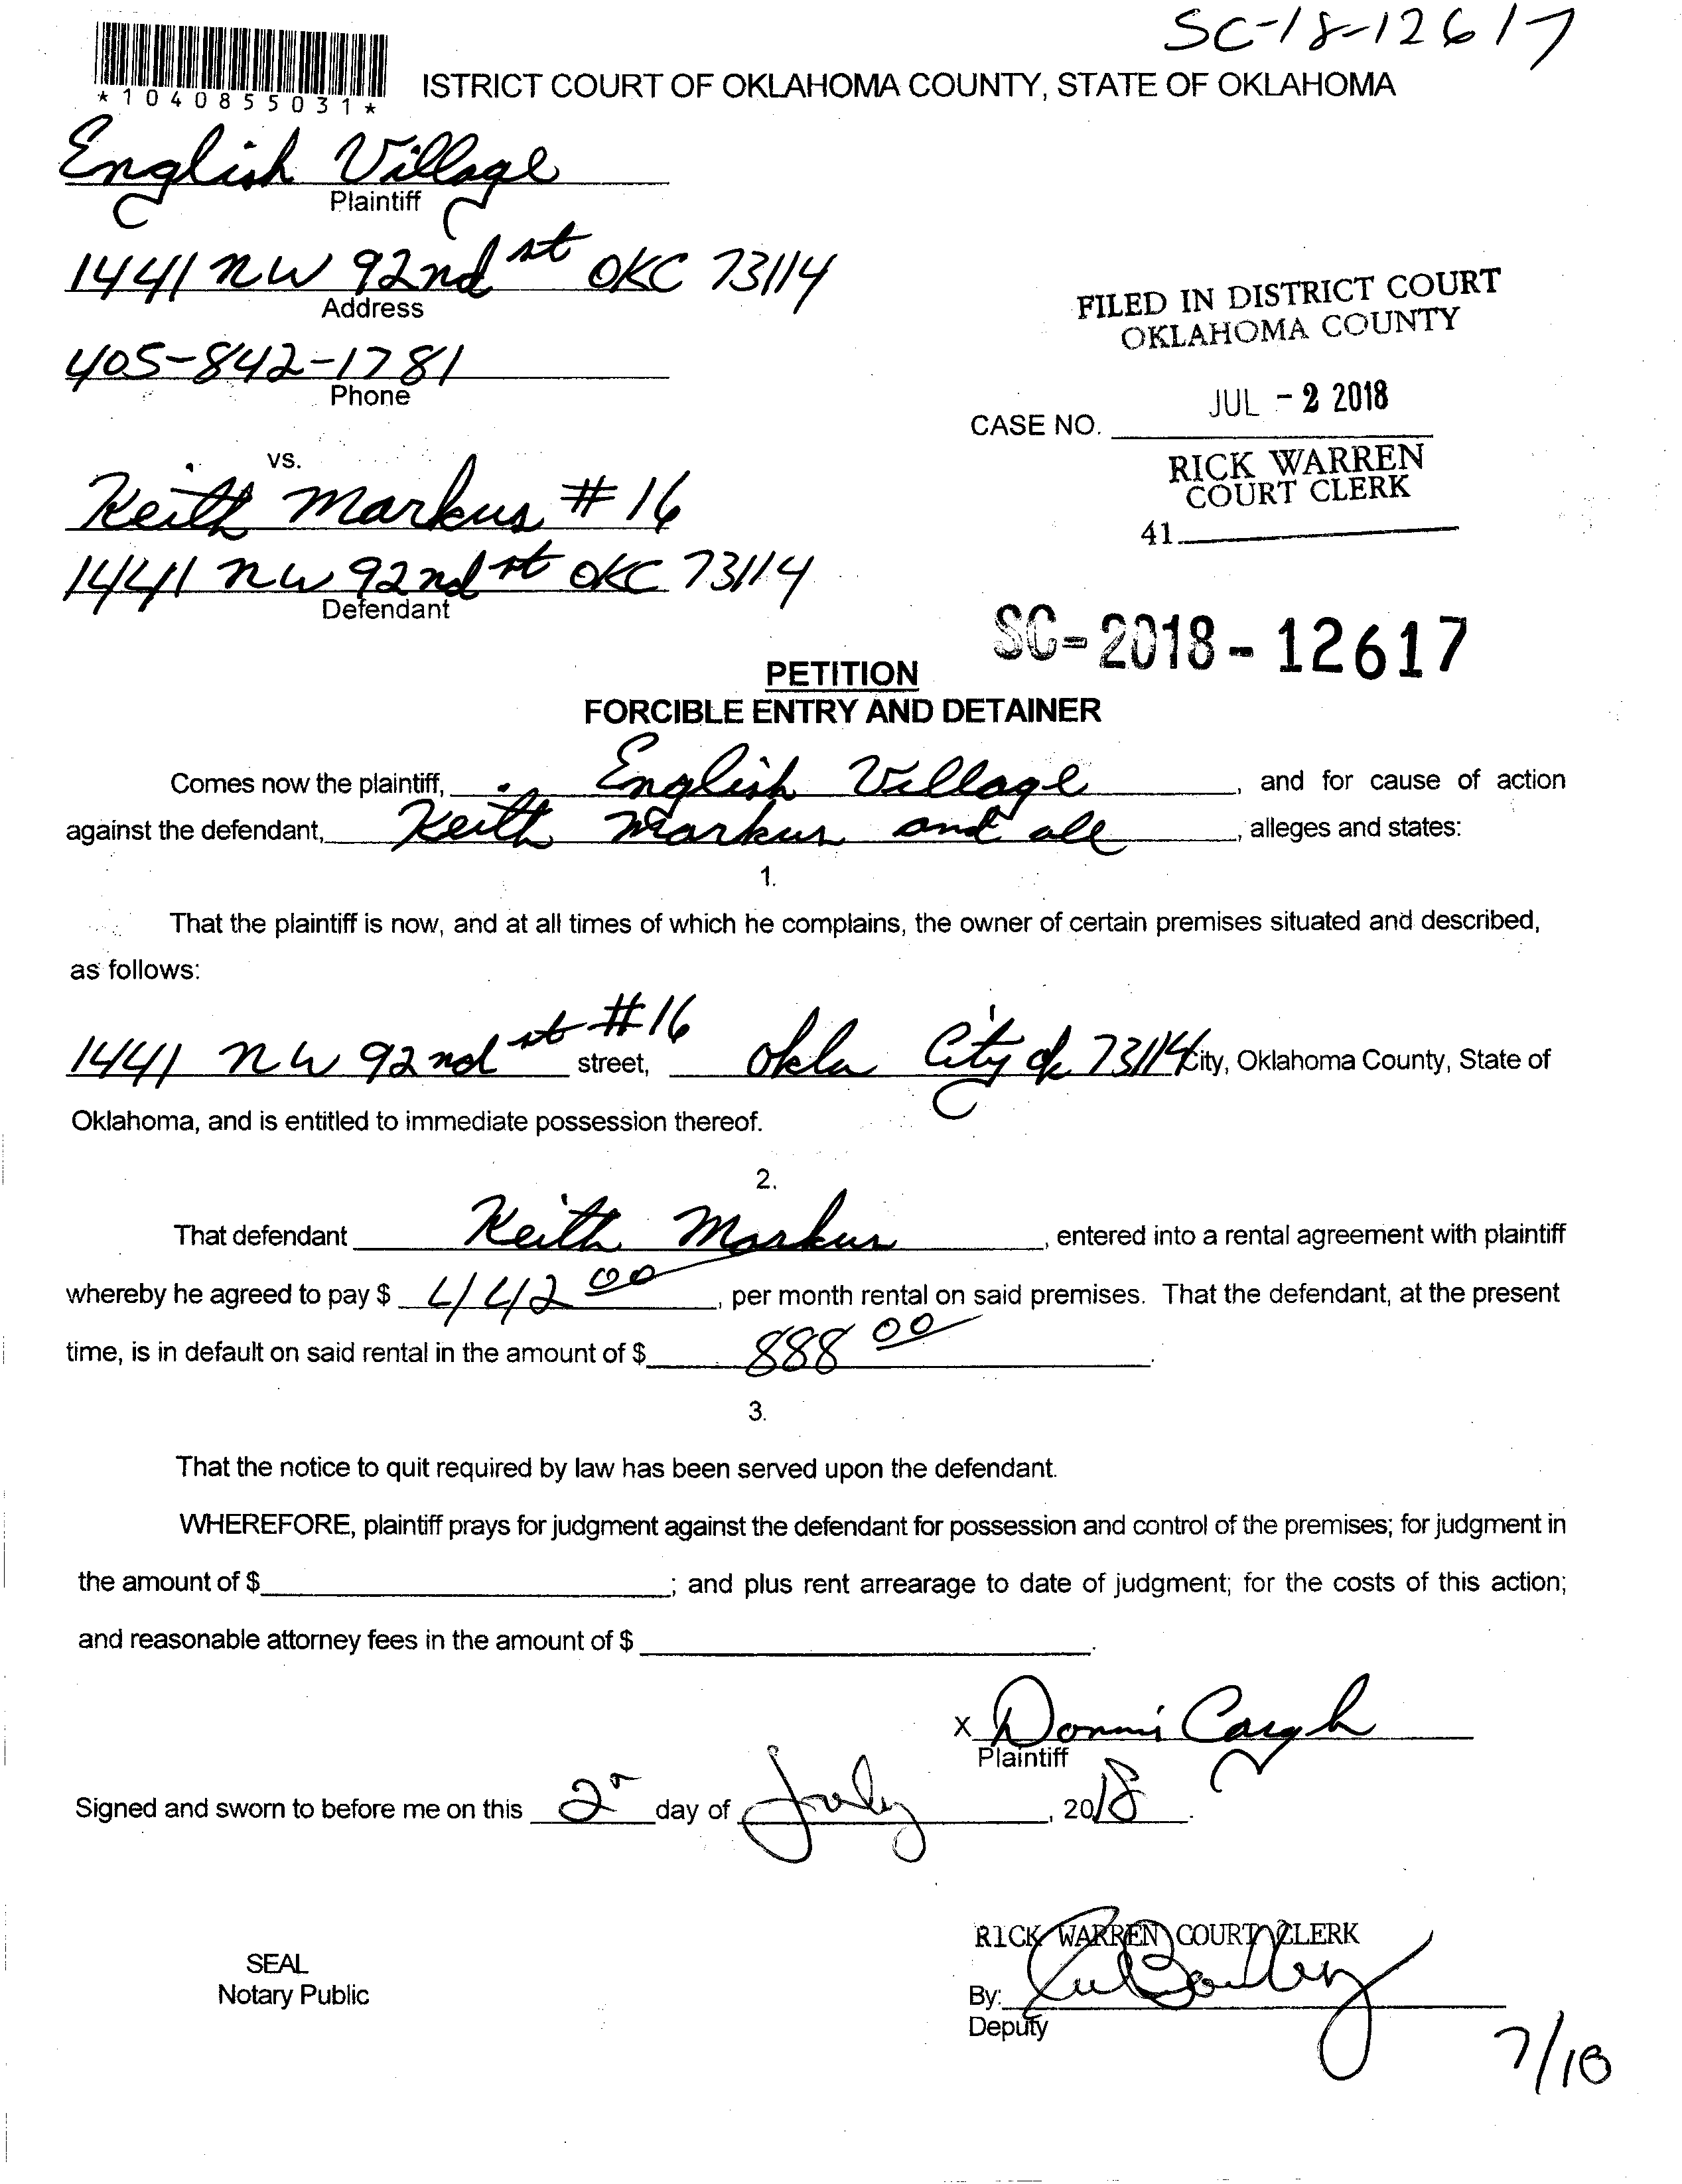 SC-18-12617
*1040855031*
ISTRICT COURT OF OKLAHOMA COUNTY, STATE OF OKLAHOMA
English Village
Plaintiff
1441 NW 92nd st OKC 73114
Address
405-842-1781
Phone
FILED IN DISTRICT COURT
OKLAHOMA COUNTY
JUL - 2 2018
CASE NO.
RICK WARREN
COURT CLERK
41
vs.
Keith Markus # 16
1441 NW 92nd st OKC 73114
Defendant
SC-2018-12617
PETITION
FORCIBLE ENTRY AND DETAINER
Comes now the plaintiff, English Village, and for cause of action
against the defendant, Keith Markus and all, alleges and states:
1.
That the plaintiff is now, and at all times of which he complains, the owner of certain premises situated and described,
as follows:
1441 NW 92nd st #16 street, Okla City ok 73114 City, Oklahoma County, State of
Oklahoma, and is entitled to immediate possession thereof.
2.
That defendant Keith Markus, entered into a rental agreement with plaintiff
whereby he agreed to pay $ 442 00, per month rental on said premises. That the defendant, at the present
time, is in default on said rental in the amount of $ 888 00.
3.
That the notice to quit required by law has been served upon the defendant.
WHEREFORE, plaintiff prays for judgment against the defendant for possession and control of the premises; for judgment in
the amount of $; and plus rent arrearage to date of judgment; for the costs of this action;
and reasonable attorney fees in the amount of $.
X
Plaintiff
Signed and sworn to before me on this 2 day of July, 2018.
RICK WARREN COURT CLERK
SEAL
Notary Public
By:
Deputy
7/18